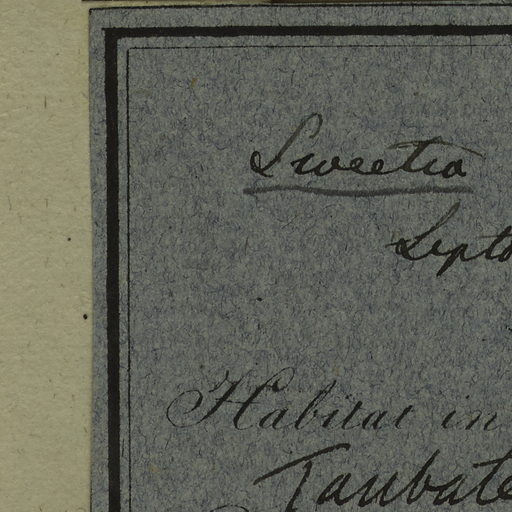 Sweetia
Lepto
Habitat in
Taubate